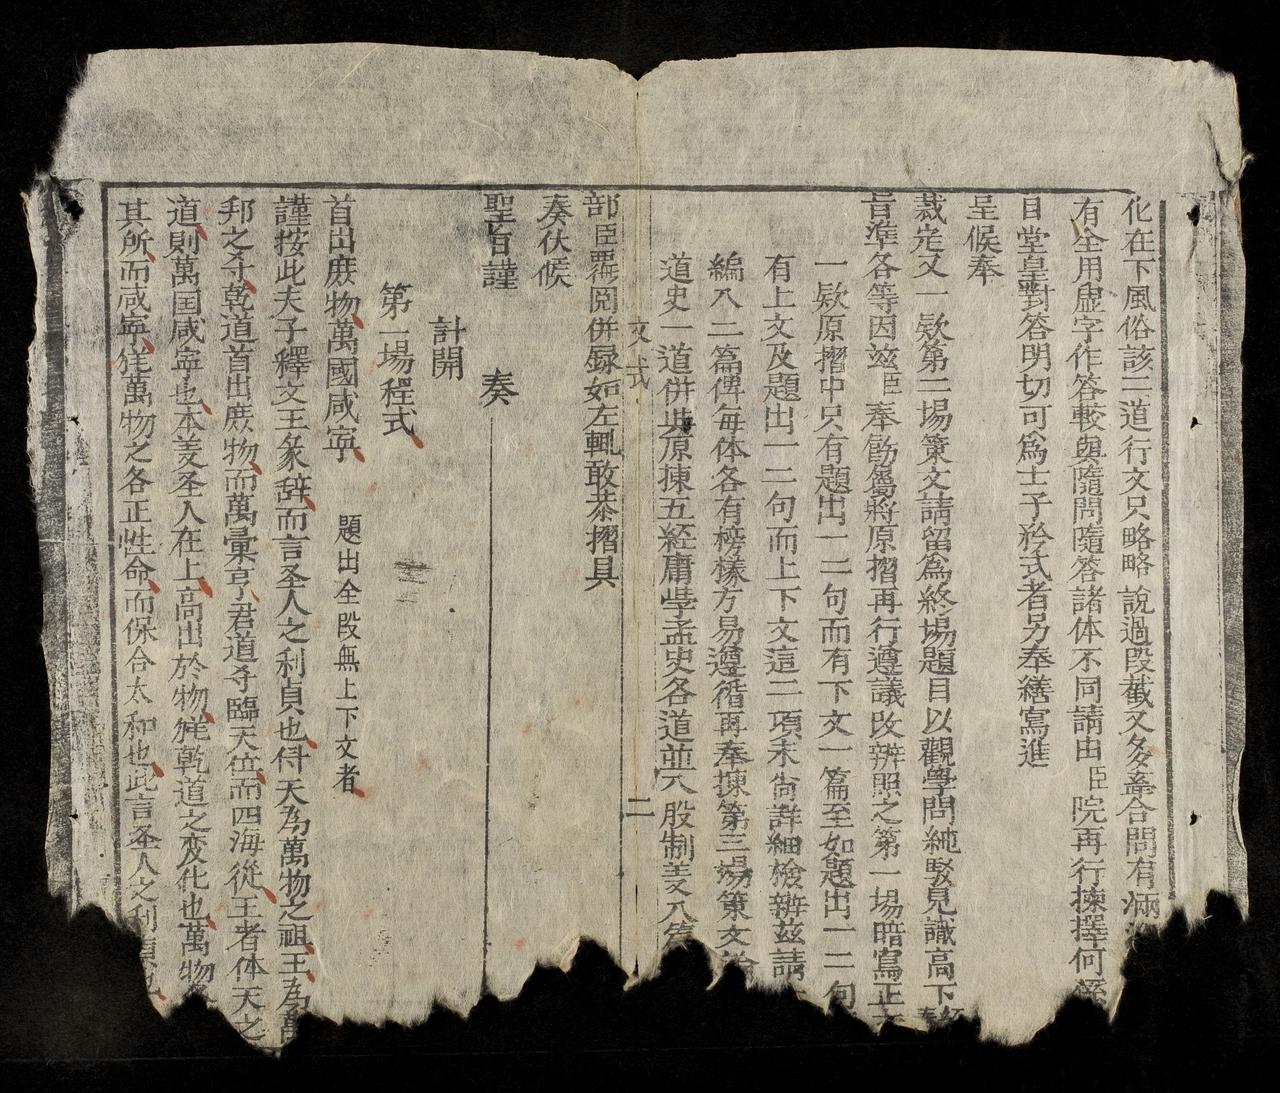 化在下風俗該三道行文只略略說過段截又多牽合問有滿
有全用虛字作答較與隨問隨答諸体不同請由臣院再行揀擇何
目堂皇對答明切可爲士子矜式者另奉繕寫進
呈候奉
裁定又一欵第二場策文請留爲終場題目以觀學問純駁見識高下
旨準各等因兹臣奉勘屬將原摺再行遵議改辨照之第一場暗寫正
一欵原摺中只有題出一二句而有下文一篇至如題出一二句
有上文及題出一二句而上下文這二項未尙詳細檢辨兹請
編八二篇俾每体各有榜樣方易遵循再奉揀第三場策文
道史一道併此原揀五經庸學孟史各道並八股制義八篇
文式
二
部臣覆閱併録如左輒敢恭摺具
奏伏候
聖旨謹
奏
計開
第一場程式
首出庶物萬國咸寧 題出全段無上下文者
謹按此夫子釋文王彖辞而言圣人之利貞也侍天為萬物之祖王為萬
邦之尊乾道首出庶物而萬彙亨君道尊臨天位而四海從王者体天之
道則萬囯咸寧也本義圣人在上高出於物犹乾道之变化也萬物
其所而咸寧犹萬物之各正性命而保合太和也此言圣人之利貞也